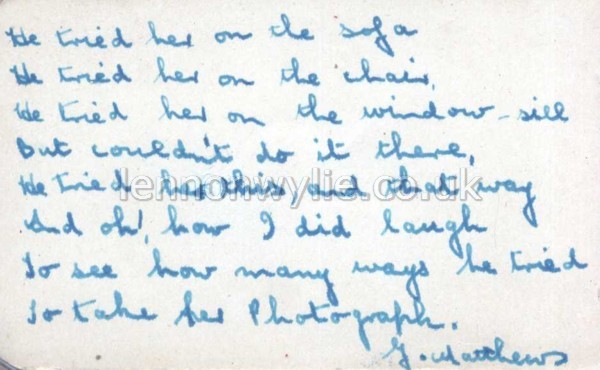 He tried her on the sofa
He tried her on the chair,
He tried her on the window-sill
But couldn't do it there,
He tried her this, and that way
And oh!, how I did laugh
To see how many ways he tried
To take her Photograph.
G. Matthews
lennonwylie.co.uk